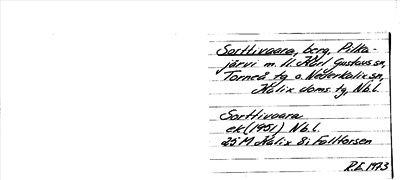 Sorttivaara, berg, Pilka-
järvi m. fl. Karl Gustavs sn,
Torneå tg o. Nederkalix sn,
Kalix doms tg, Nb.L
Sorttivaara
ek (1951) Nb.L.
25 M Kalix 8i Falltorsen
R.E. 1973